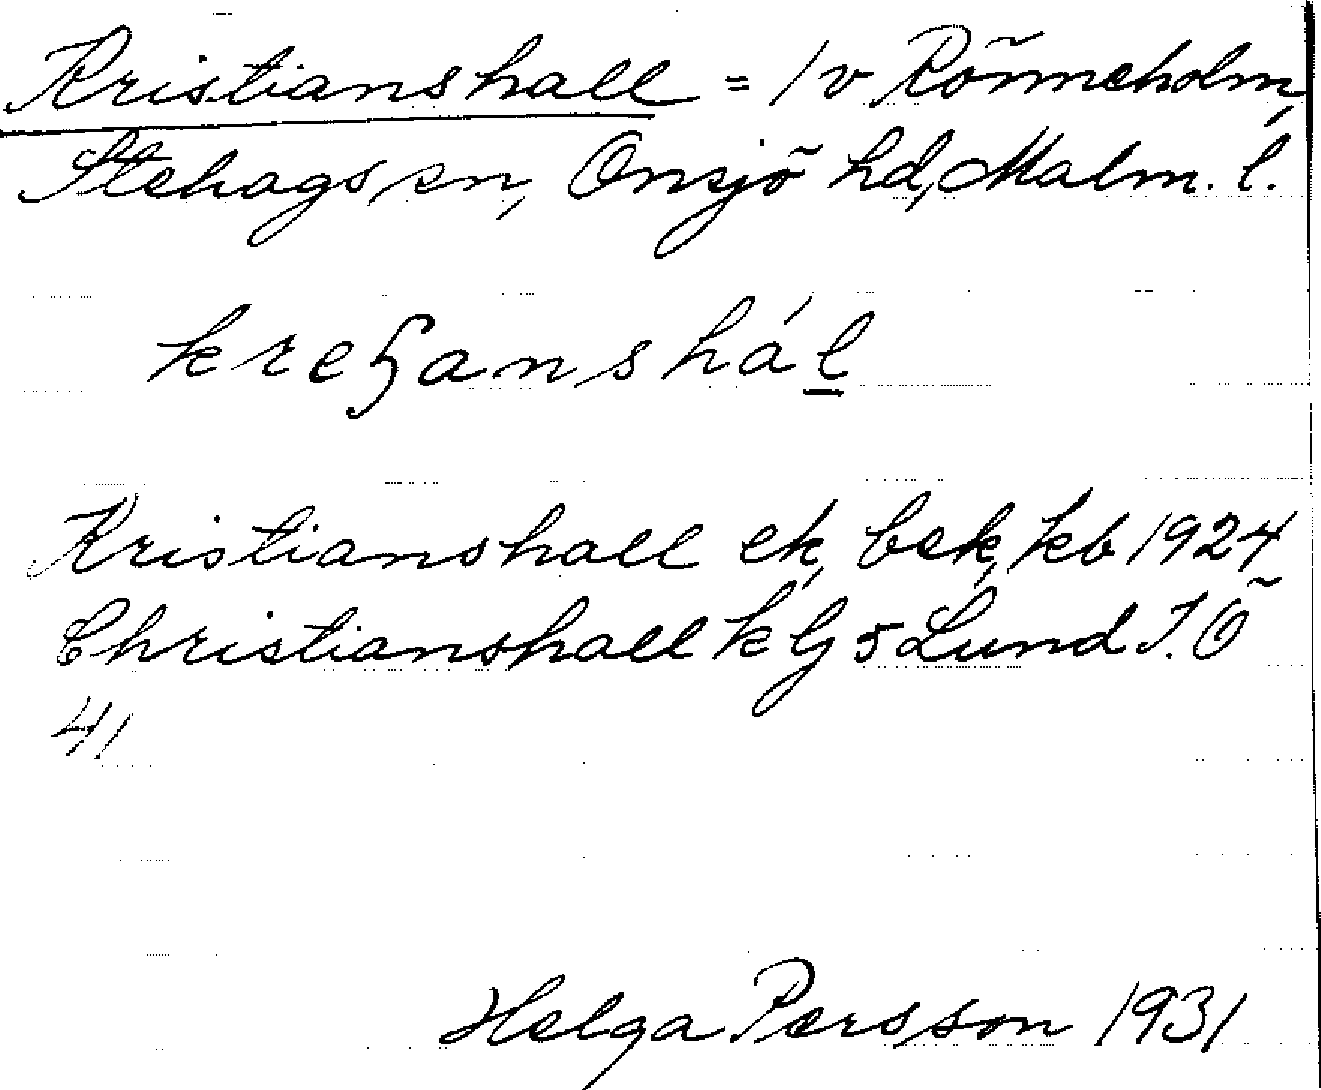 Kristianshall = 1 v Rönneholm,
Stehags sn, Onsjö hd, Malm. l.
Kristianshall ek, bek, kb 1924
Christianshall k Lj 5 Lund J. Ö
41
Helga Persson 1931